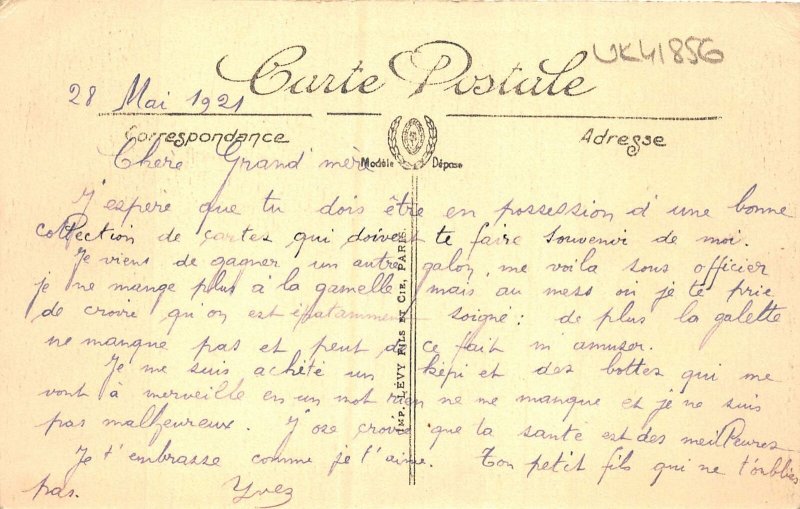 UK41856
Carte Postale
28 Mai 1921
Correspondance
Adresse
Modèle Déposé
Chère Grand'mère
J'espère que tu dois être en possession d'une bonne
collection de cartes qui doivent te faire souvenir de moi.
Je viens de gagner un autre galon, me voila sous officier
je ne mange plus à la gamelle mais au mess où je te prie
de croire qu'on est soigné : de plus la galette
ne manque pas et peut de ce fait m'amuser.
Je me suis acheté un képi et des bottes qui me
vont à merveille en un mot rien ne me manque et je ne suis
pas malheureux. J'ose croire que ta santé est des meilleures
Je t'embrasse comme je t'aime. Ton petit fils qui ne t'oublies
pas. Yvez
IMP. LÉVY FILS ET CIE, PARIS